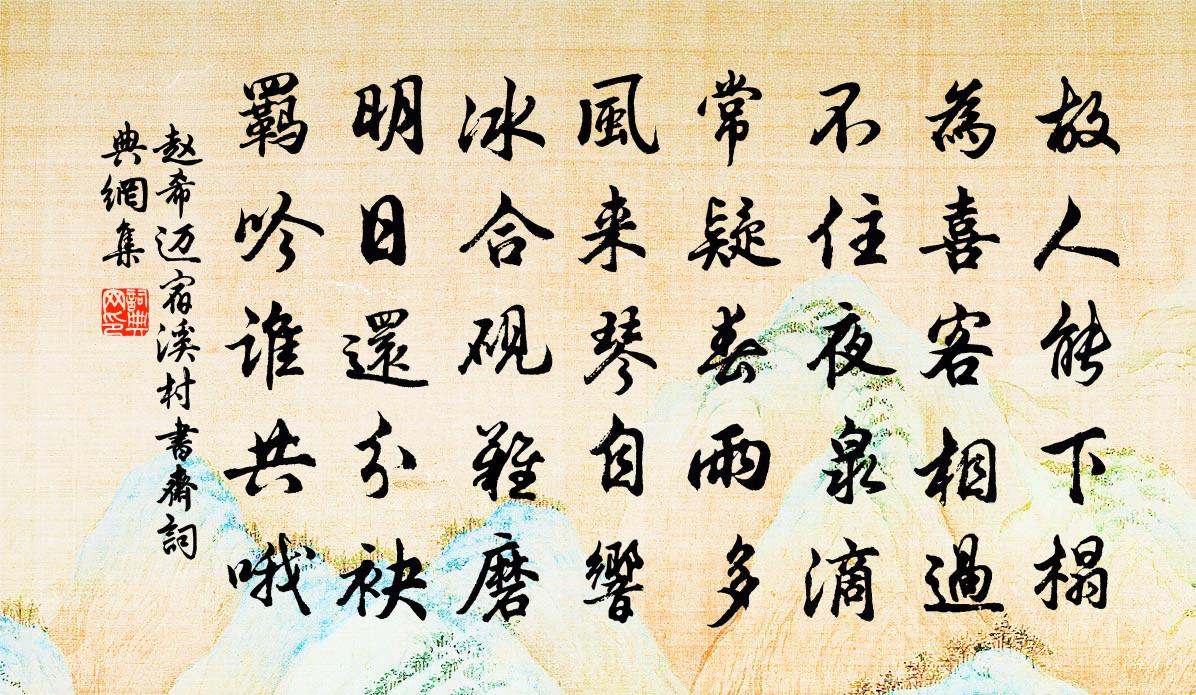 故人能下榻
為喜客相過
不住夜泉滴
常疑春雨多
風来琴自響
冰合砚難磨
明日還分袂
羁吟谁共哦
赵希迈宿溪村書齋詞
典網集
詞典
网印